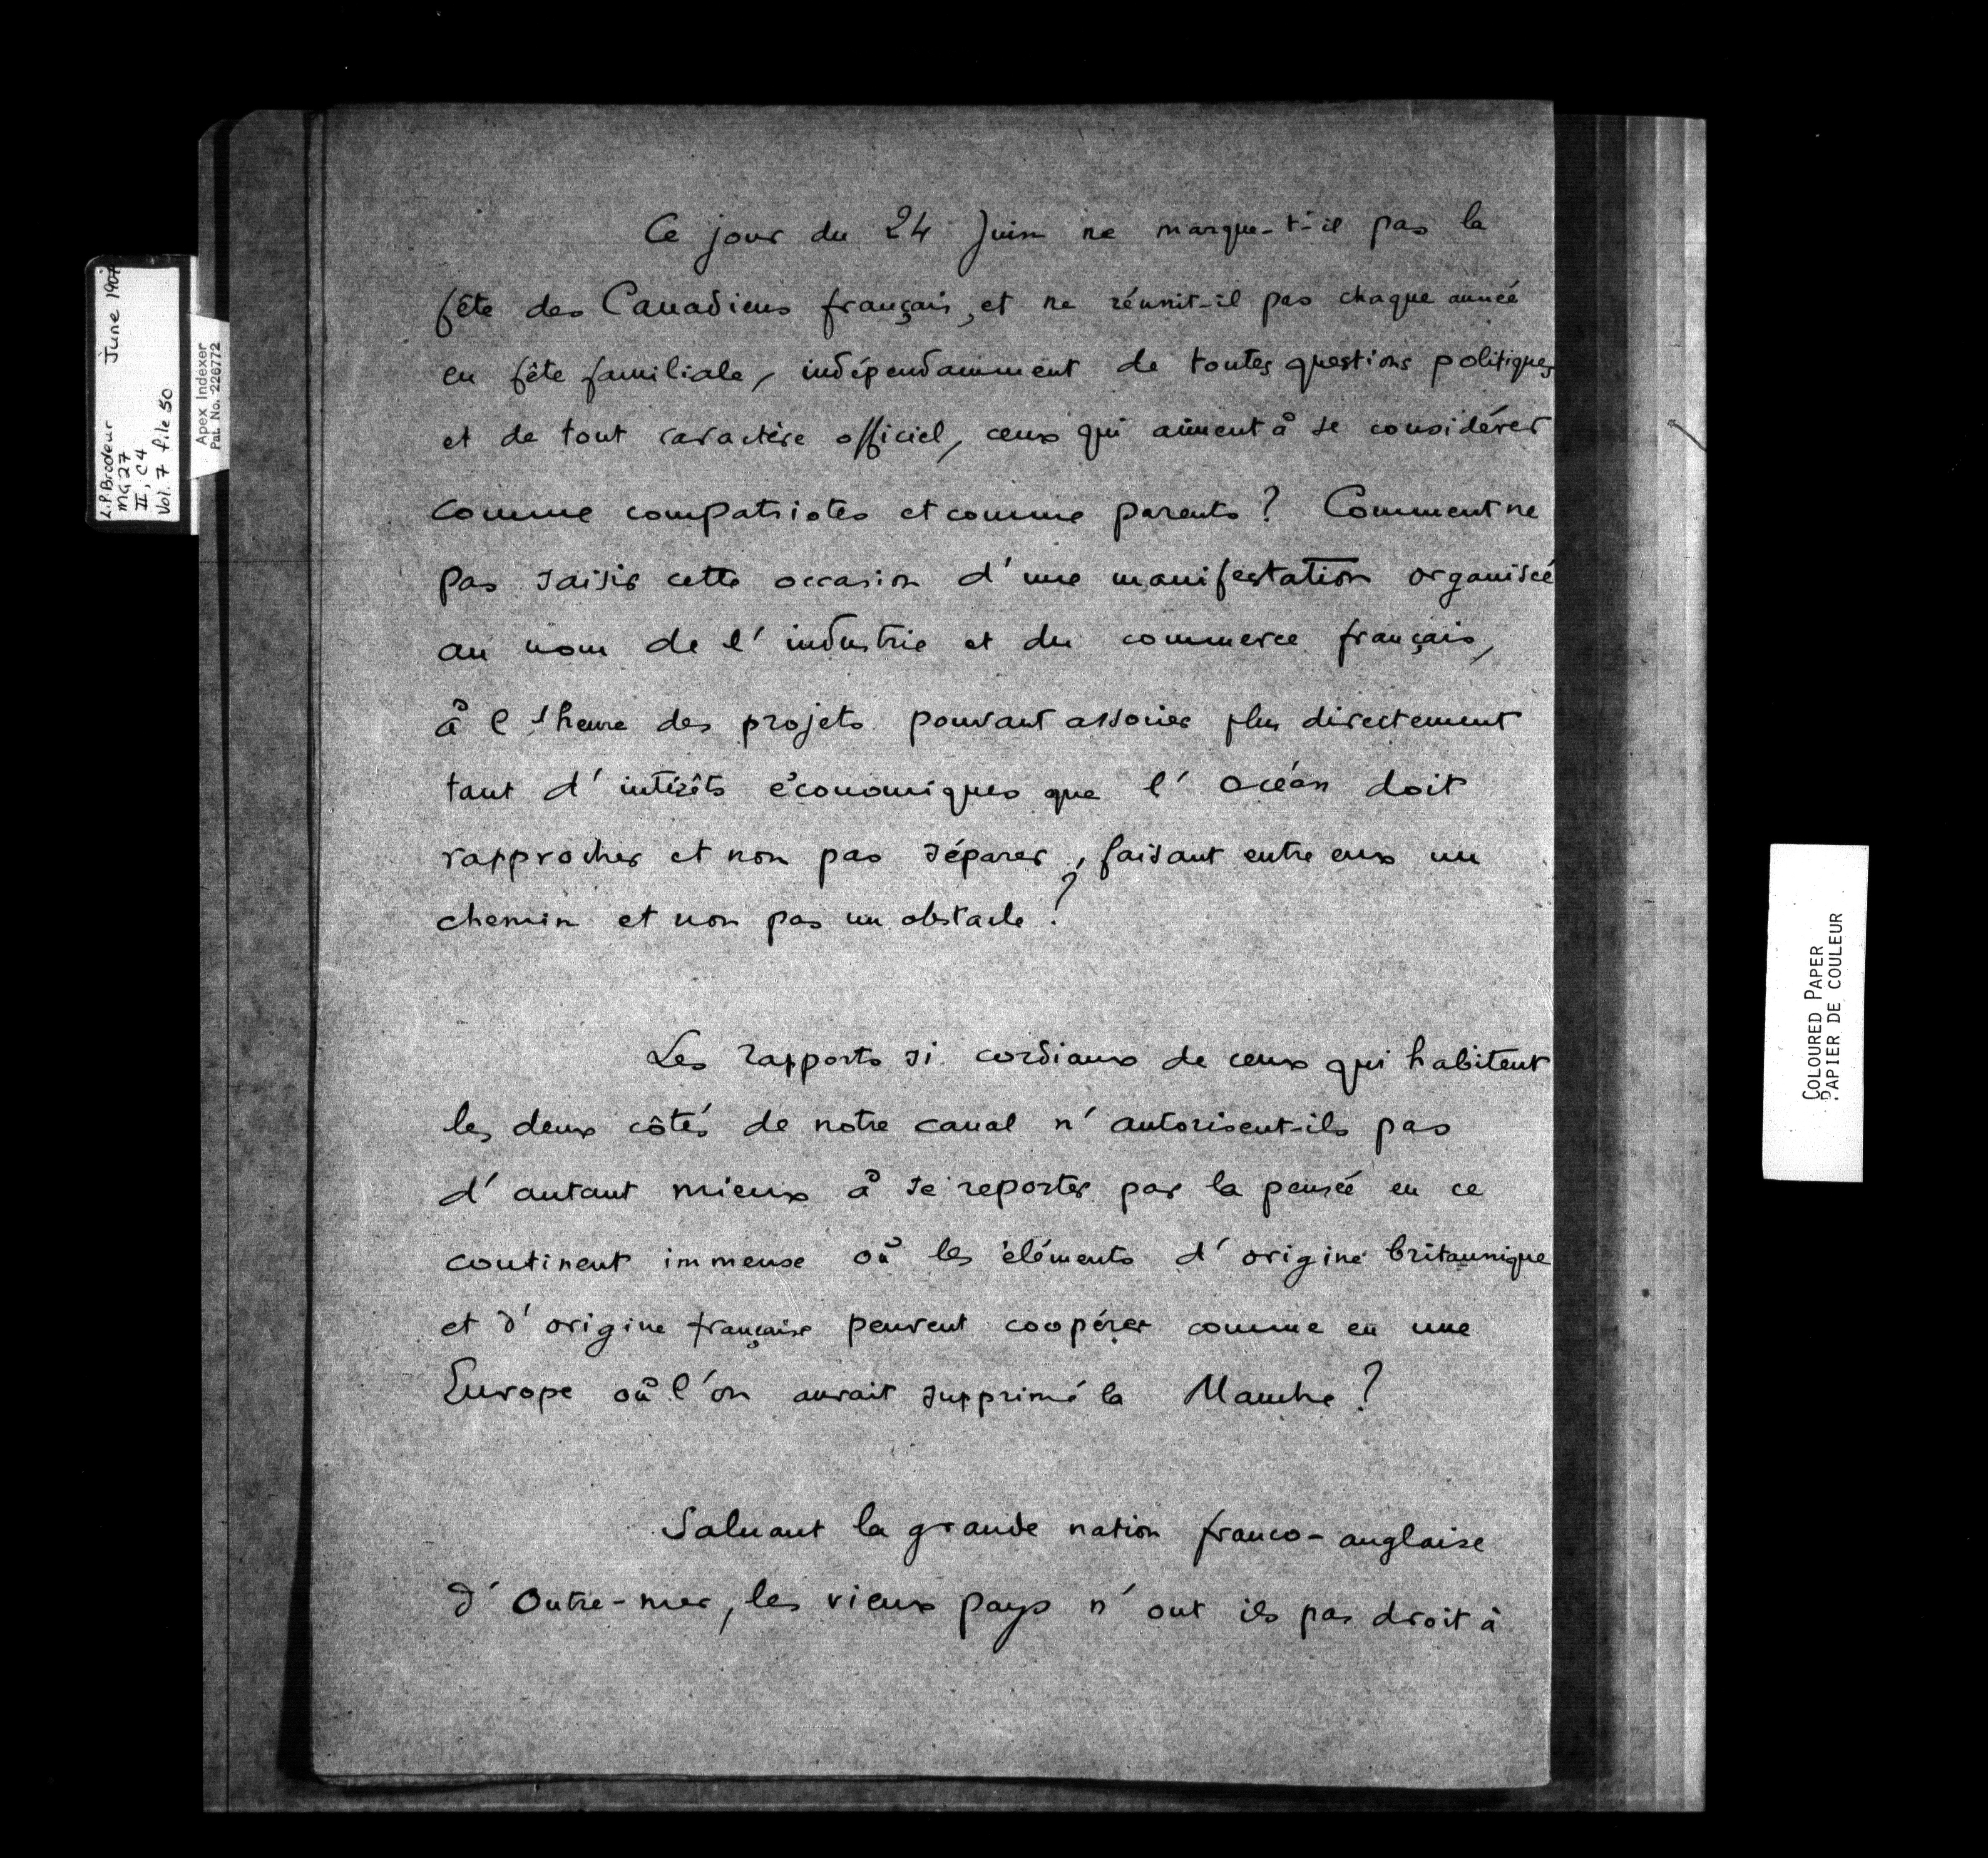 L.P. Brodeur June 1907
MG 27
II, C4
Vol. 7 file 50
Apex Indexer
Pat. No. 226772
Ce jour du 24 Juin ne marque-t-il pas la
fête des Canadiens français, et ne réunit-il pas chaque année
en fête familiale, indépendamment de toutes questions politiques
et de tout caractère officiel, ceux qui aiment à se considérer
comme compatriotes et comme parents ? Comment ne
pas saisir cette occasion d'une manifestation organisée
au nom de l'industrie et du commerce français,
à l'heure des projets pouvant associer plus directement
tant d'intérêts économiques que l'Océan doit
rapprocher et non pas séparer, faisant entre eux un
chemin et non pas un obstacle ?
Les rapports si cordiaux de ceux qui habitent
les deux côtés de notre canal n'autorisent-ils pas
d'autant mieux à se reporter par la pensée en ce
continent immense où les éléments d'origine britannique
et d'origine française peuvent coopérer comme en une
Europe où l'on aurait supprimé la Manche ?
Saluant la grande nation franco-anglaise
d'Outre-mer, les vieux pays n'ont ils pas droit à
COLOURED PAPER
PAPIER DE COULEUR